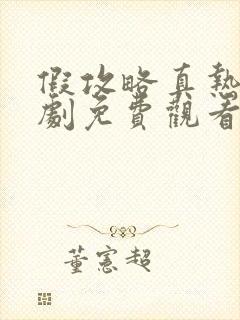 假攻略真熱
劇免費觀看
董憲超